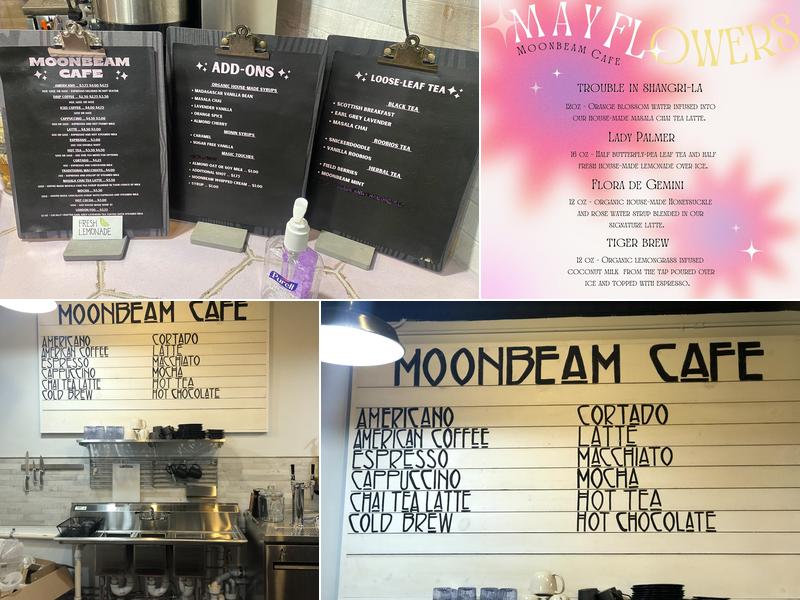 MOONBEAM
CAFE
AMERICANO
DRIP COFFEE
ICED COFFEE
CAPPUCCINO
LATTE
ESPRESSO
CORTADO
TRADITIONAL MACCHIATO
MASALA CHAI TEA LATTE
MOCHA
HOT COCOA
LONDON FOG
FRESH
LEMONADE
ADD-ONS
ORGANIC HOUSE-MADE SYRUPS
• MADAGASCAR VANILLA BEAN
• MASALA CHAI
• LAVENDER VANILLA
• ORANGE SPICE
• ALMOND CHERRY
MONIN SYRUPS
• CARAMEL
• SUGAR FREE VANILLA
MAGIC TOUCHES
• ALMOND OAT OR SOY MILK .. $1.00
• ADDITIONAL SHOT ... $1.75
• MOONBEAM WHIPPED CREAM .. $1.00
• SYRUP .. $1.00
LOOSE-LEAF TEA
BLACK TEA
• SCOTTISH BREAKFAST
• EARL GREY LAVENDER
• MASALA CHAI
ROOIBOS TEA
• SNICKERDOODLE
• VANILLA ROOIBOS
HERBAL TEA
• FIELD BERRIES
• MOONBEAM MINT
Purell
MAYFLOWERS
MOONBEAM CAFE
TROUBLE IN SHANGRI-LA
12OZ - ORANGE BLOSSOM WATER INFUSED INTO
OUR HOUSE-MADE MASALA CHAI TEA LATTE.
LADY PALMER
16 OZ - HALF BUTTERFLY-PEA LEAF TEA AND HALF
FRESH HOUSE-MADE LEMONADE OVER ICE.
FLORA DE GEMINI
12 OZ - ORGANIC HOUSE-MADE HONEYSUCKLE
AND ROSE WATER SYRUP BLENDED IN OUR
SIGNATURE LATTE.
TIGER BREW
12 OZ - ORGANIC LEMONGRASS INFUSED
COCONUT MILK FROM THE TAP POURED OVER
ICE AND TOPPED WITH ESPRESSO.
MOONBEAM CAFE
AMERICANO
AMERICAN COFFEE
ESPRESSO
CAPPUCCINO
CHAI TEA LATTE
COLD BREW
CORTADO
LATTE
MACCHIATO
MOCHA
HOT TEA
HOT CHOCOLATE
MOONBEAM CAFE
AMERICANO
AMERICAN COFFEE
ESPRESSO
CAPPUCCINO
CHAI TEA LATTE
COLD BREW
CORTADO
LATTE
MACCHIATO
MOCHA
HOT TEA
HOT CHOCOLATE